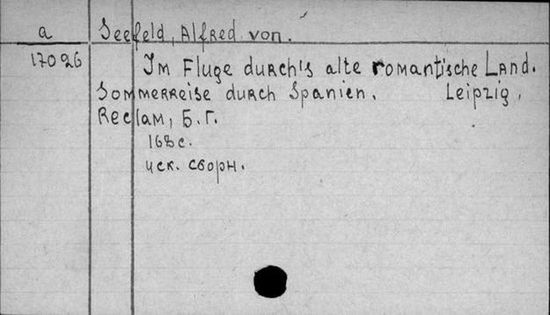 a Seefeld, Alfred von.
17026 Im Fluge durch's alte romantische Land.
Sommerreise durch Spanien. Leipzig,
Reclam, б. г.
168 с.
иск. сворн.